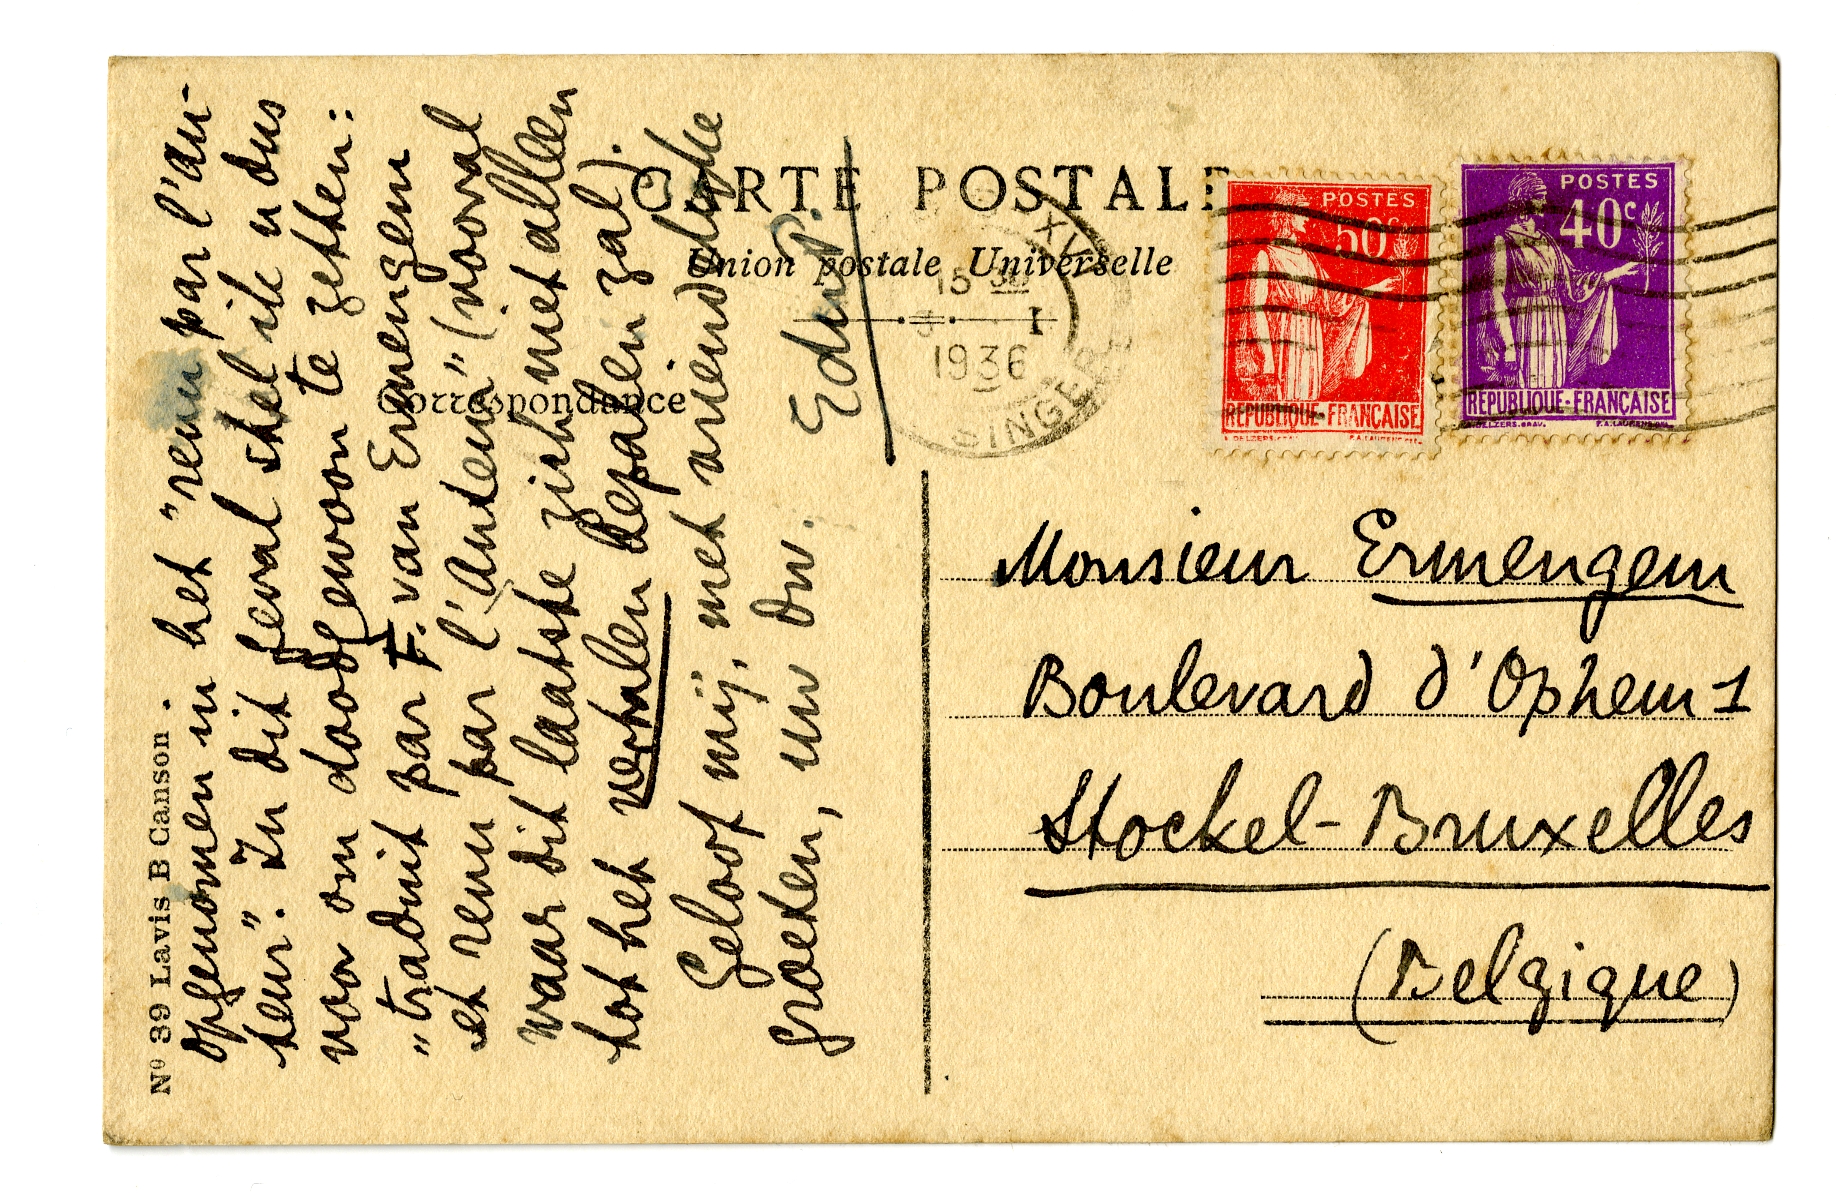 Nº 39 Lavis B Canson.
opgenomen in het "revu par l'au-
teur". In dit geval stel ik u dus
voor om doodgewoon te zetten:
"traduit par F. van Ermengem
et revu par l'auteur" (vooral
waar dit laatste zich niet alleen
tot het vertalen bepalen zal).
Geloof mij, met vriendelijke
groeten, uw dw.
EduP.
CARTE POSTALE
Union postale Universelle
Correspondance
XVI
15 30
I
1936
SINGER
POSTES
50c
REPUBLIQUE·FRANÇAISE
POSTES
40c
REPUBLIQUE·FRANÇAISE
Monsieur Ermengem
Boulevard d'Ophem 1
Stockel-Bruxelles
(Belgique)